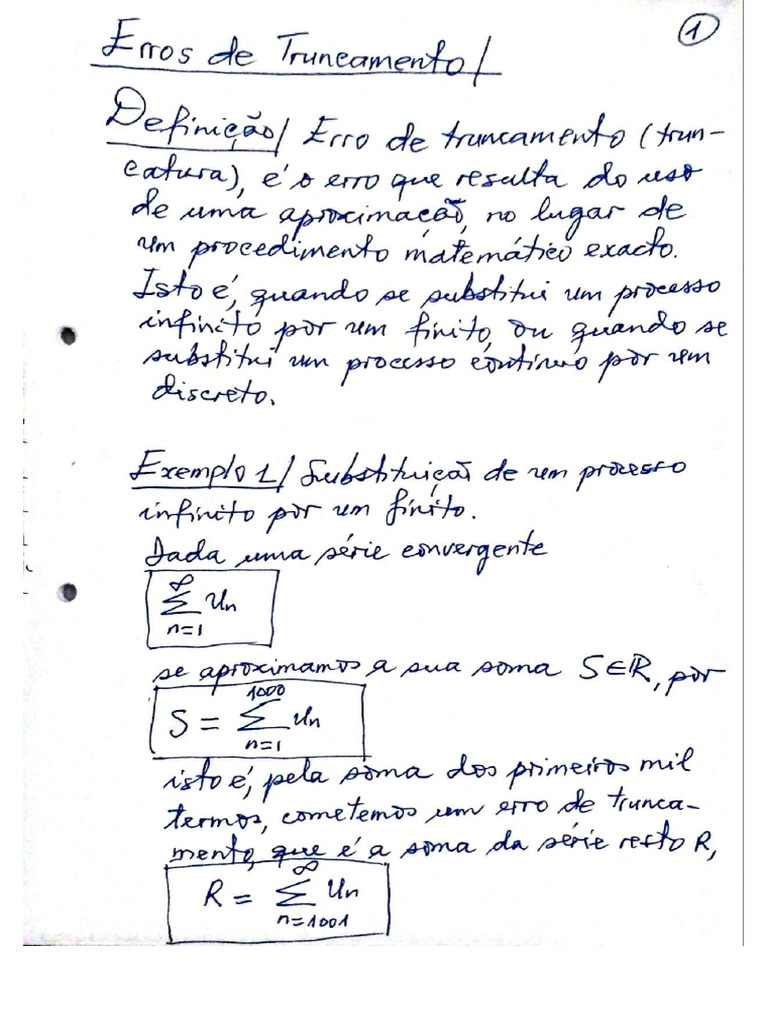 1
Erros de Truncamento/
Definição/ Erro de truncamento (trun-
catura), é o erro que resulta do uso
de uma aproximação, no lugar de
um procedimento matemático exacto.
Isto é, quando se substitui um processo
infinito por um finito, ou quando se
substitui um processo contínuo por um
discreto.
Exemplo 1/ Substituição de um processo
infinito por um finito.
Dada uma série convergente
∞
∑ Un
n=1
se aproximamos a sua soma S∈ℝ, por
1000
S = ∑ Un
n=1
isto é, pela soma dos primeiros mil
termos, cometemos um erro de trunca-
mento, que é a soma da série resto R,
∞
R = ∑ Un
n=1001